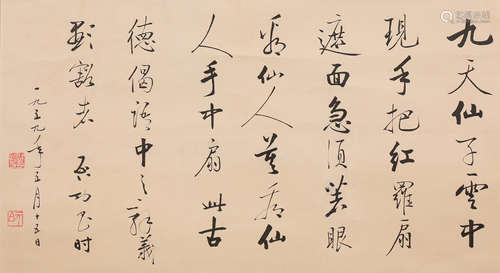 九天仙子雲中
現手把紅羅扇
遮面急須著眼
看仙人莫看仙
人手中扇 此古
德偈語中之義
豁者 启功時
一九五九年五月十五日